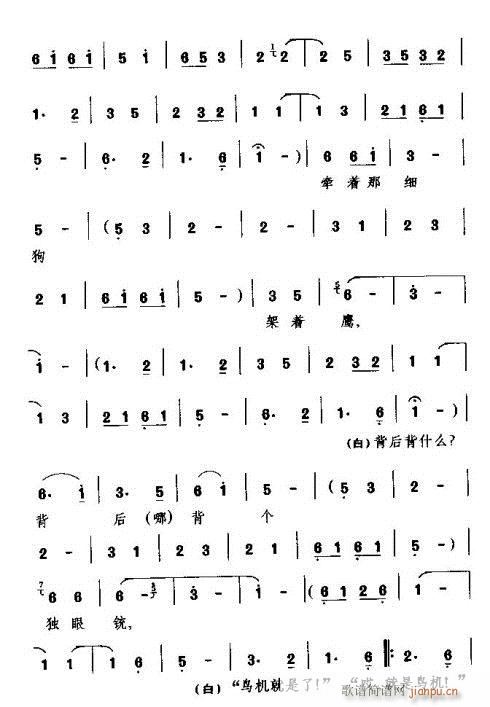 6 i 6 i | 5 i | 6 5 3 | 2 2 | 2 5 | 3 5 3 2 |
1· 2 | 3 5 | 2 3 2 | 1 1 | 1 3 | 2 1 6 1 |
5 - | 6· 2 | 1· 6 | 1 - ) | 6 6 i | 3 5 3 2 |
牵着那 细
5 - | ( 5 3 | 2 - | 2 - | 3 1 | 2 3 |
狗
2 1 | 6 i 6 i | 5 - ) | 3 5 | 6 - | 3 - |
架着 鹰,
i - | ( 1· 2 | 1· 2 | 3 5 | 2 3 2 | 1 1 |
1 3 | 2 1 6 1 | 5 - | 6· 2 | 1· 6 | 1 - ) |
(白)背后背什么?
6· i | 3· 5 | 6 i | 5 - | ( 5 3 | 2 - |
背 后(哪)背 个
2 - | 3 1 | 2 3 | 2 1 | 6 1 6 1 | 5 - ) |
6 6 | 6 - | 3 - | 1 - | ( 6 1 2 6 | 1 - |
独眼 铳,
1 1 | 1 - | 5· 6 | 5· 6 | 1 - 6 ‖: 2· 6 |
(白)“鸟机就是了!” “哎,就是鸟机!”
歌谱简谱网
jianpu.cn